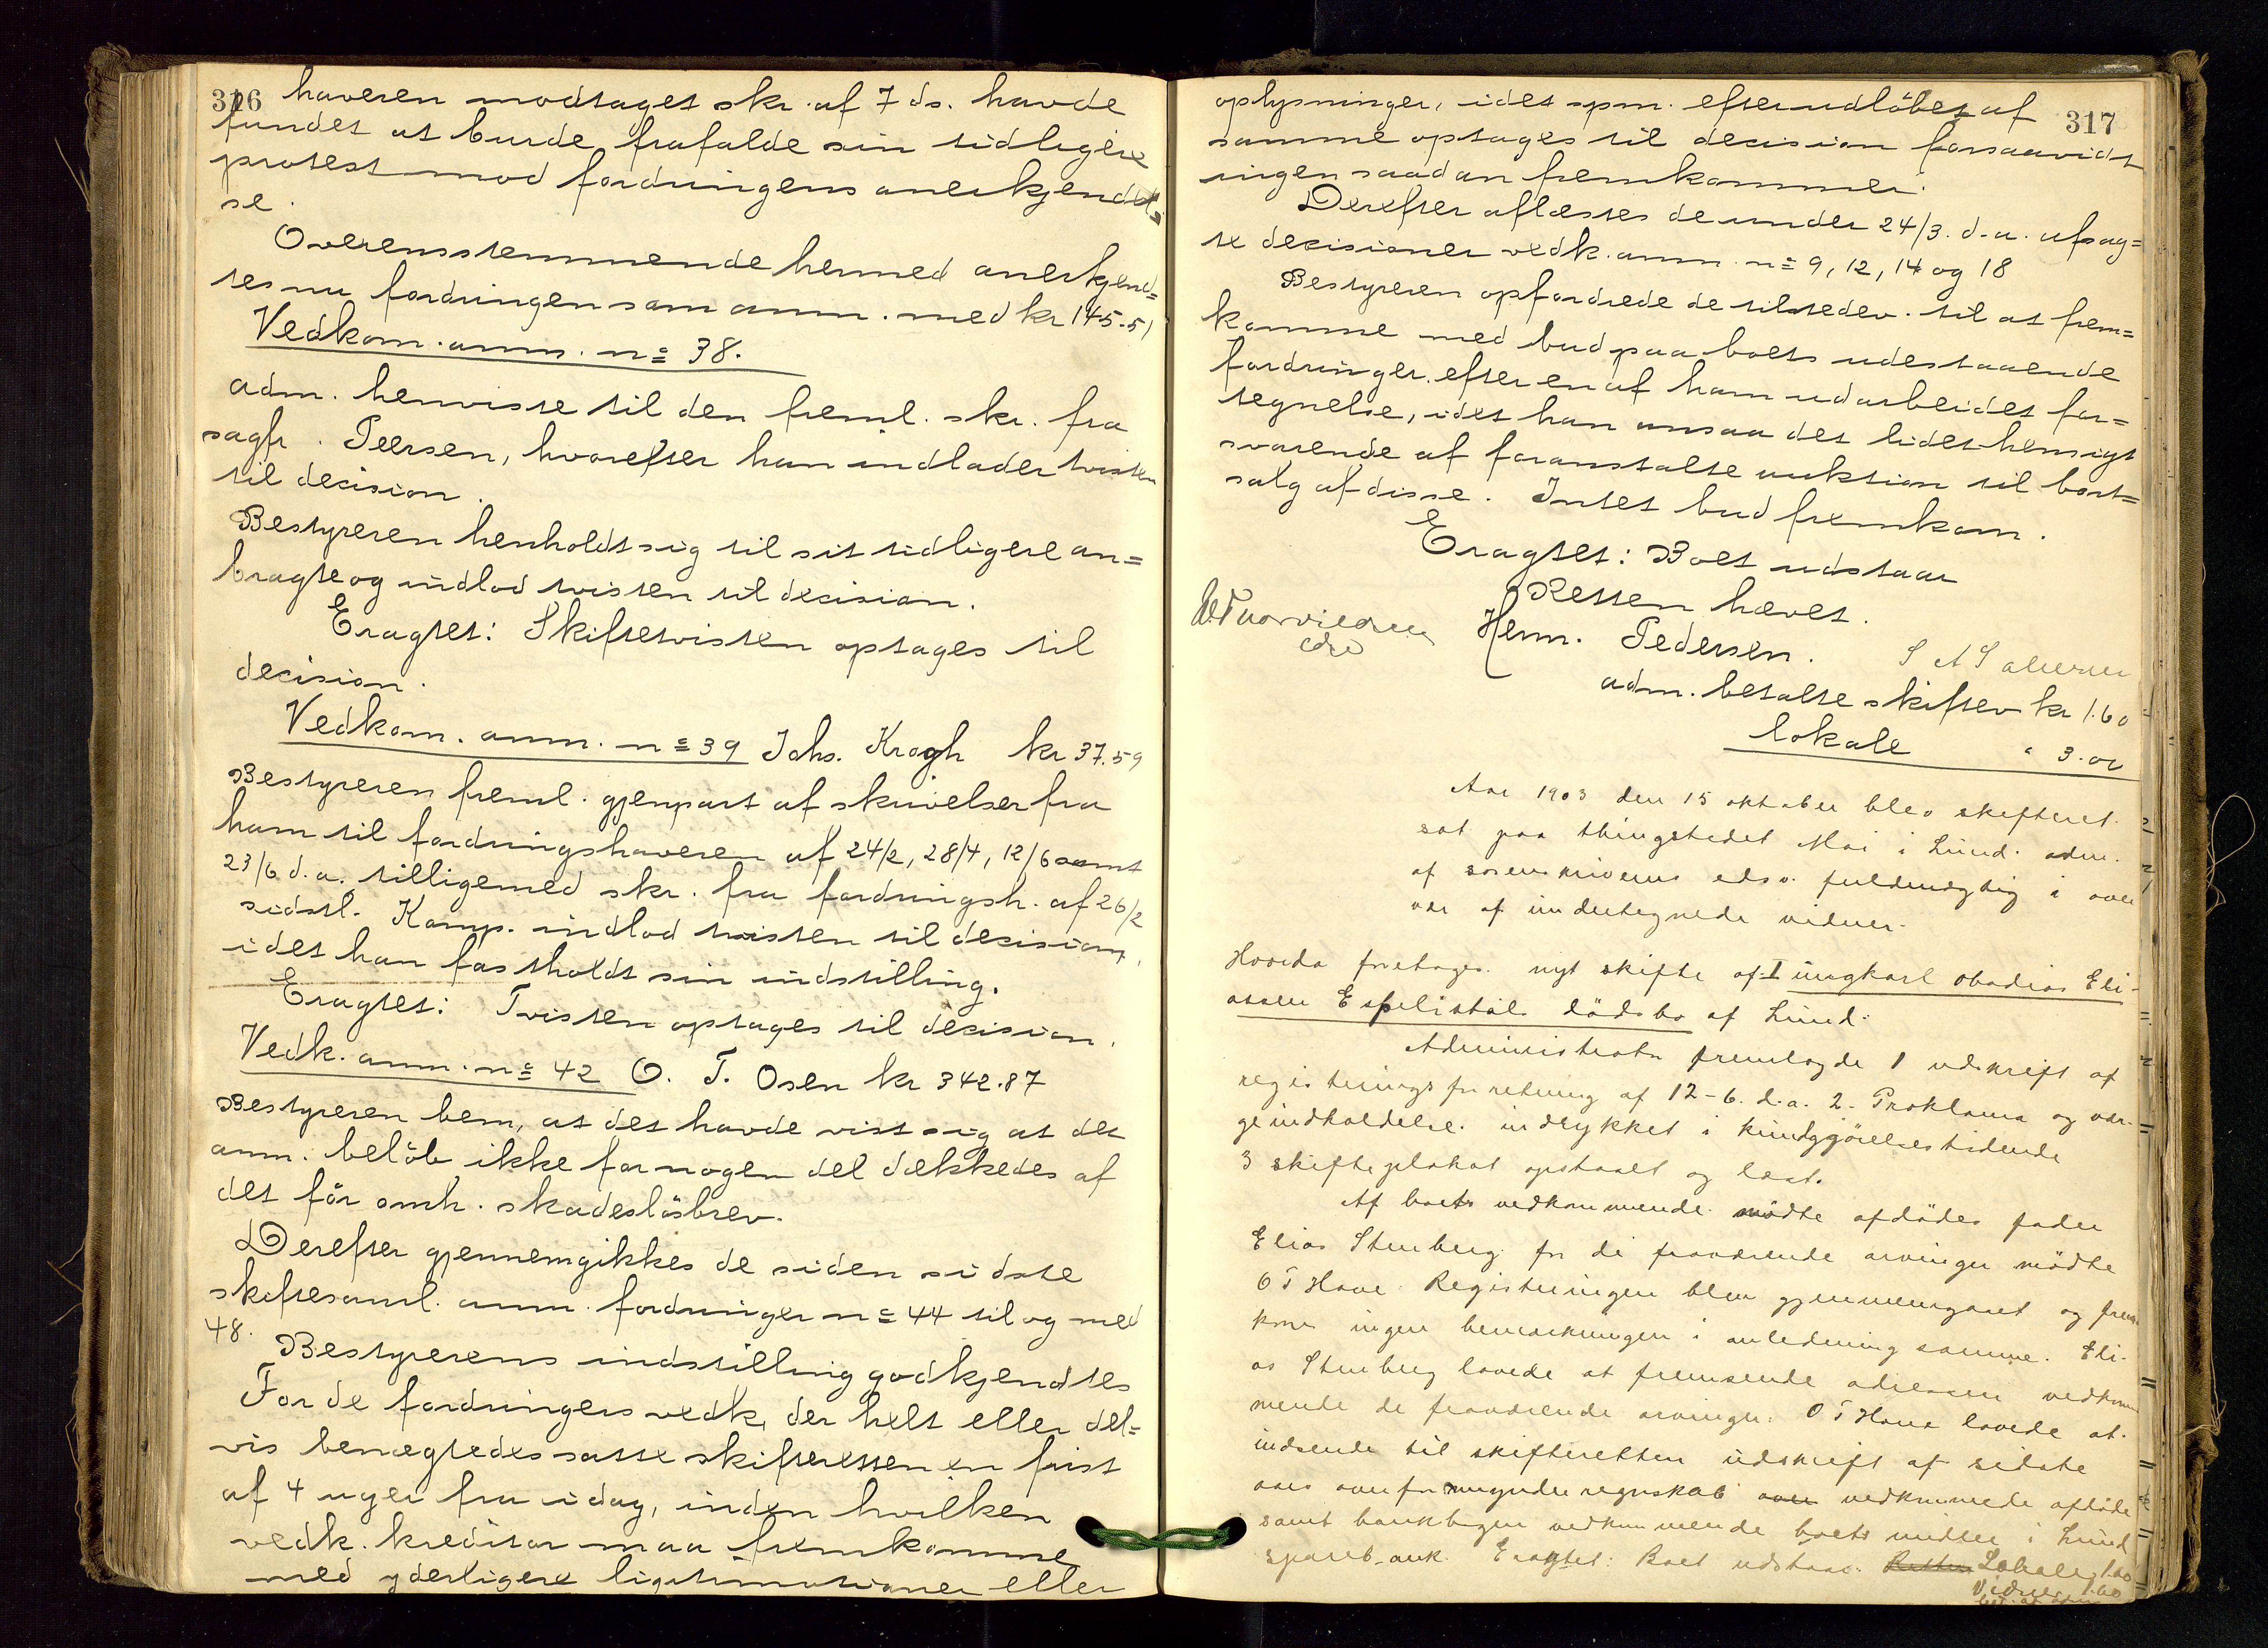 316
haveren modtaget skr. af 7 ds. havde
fundet at burde frafalde sin tidligere
protest mod fordringens anerkjendel=
se.
Overensstemmende hermed anerkjend=
tes nu fordringen som anm. med kr 145.51
Vedkom. anm. no 38.
adm. henviste til den freml. skr. fra
sagfr. Peersen, hvorefter han indlader tvisten
til decision.
Bestyreren henholdt sig til sit tidligere an=
bragte og indlod tvisten til decision.
Eragtet: Skiftetvisten optages til
decision.
Vedkom. anm. no 39 Johs. Krogh kr 37.59
Bestyreren freml. gjenpart af skrivelser fra
ham til fordringshaveren af 24/2, 28/4, 12/6 samt
23/6 d.a. tilligemed skr. fra fordringsh. af 26/2
sidstl. Komp. indlod tvisten til decision,
idet han fastholdt sin indstilling.
Eragtet: Tvisten optages til decision.
Vedk. anm. no 42 O. T. Osen kr 342.87
Bestyreren bem, at det havde vist sig at det
anm. beløb ikke for nogen del dækkedes af
det før omh. skadesløsbrev.
Derefter gjennemgikkes de siden sidste
skiftesaml. anm. fordringer no 44 til og med
48.
Bestyrerens indstilling godkjendtes
For de fordringers vedk, der helt eller del=
vis benægtedes satte skifteretten en frist
af 4 uger fra idag, inden hvilken
vedk. kreditor maa fremkomme
med yderligere legitimationer eller
317
oplysninger, idet spm. efter udløbet af
samme optages til decision forsaavidt
ingen saadan fremkommer.
Derefter aflæstes de under 24/3. d.a. afsag=
te decisioner vedk. anm. no 9, 12, 14 og 18
Bestyreren opfordrede de tilstedev. til at frem=
komme med bud paa boets udestaaende
fordringer efter en af ham udarbeidet for=
tegnelse, idet han ansaa det lidet hensigt
svarende af foranstalte auktion til bort=
salg af disse. Intet bud fremkom.
Eragtet: Boet udstaar
Retten hævet.
Herm. Pedersen.
adm. betalte skiftev kr 1.60
lokale " 3.00
Aar 1903 den 15 oktober blev skifteret
sat paa thingstedet Moi i Lund. adm.
af sorenskriverens edsv. fuldmægtig i over
vær af undertegnede vidner.
Hvorda foretoges nyt skifte af: I ungkarl Obadias Eli-
assen Espelistøls dødsbo af Lund.
Administrator fremlagde 1 udskrift af
registreringsforretning af 12-6. d.a. 2. Proklama og var-
geindkaldelse. indrykket i kundgjørelsestidende
3 skifteplakat opstaaet og læst.
Af boets vedkommende mødte afdødes fader
Elias Stenberg for de fraværende arvinger mødte
O T Hove. Registreringen blev gjennemgaaet og frem
kom ingen bemærkninger i anledning samme. Eli-
as Stenberg lovede at fremsende adressen vedkom
mende de fraværende arvinger. O T Hove lovede at
indsende til skifteretten udskrift af sidste
aars overformynderregnskab over vedkommende afdøde
samt bankbogen vedkommende boets midler i Lund
spareb-ank. Eragtet: Boet udstaar. Retten Lokale 1.00
Vidner 1.60